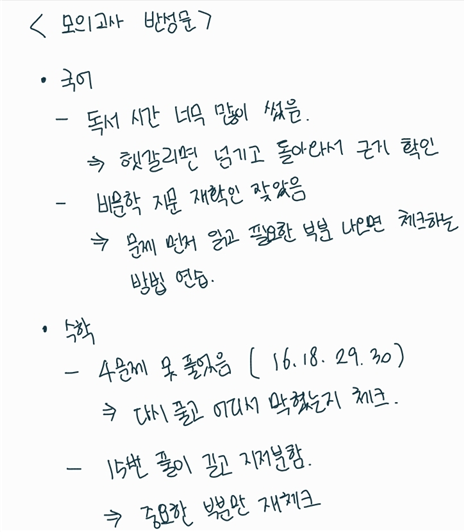 < 모의고사 반성문 >
• 국어
- 독서 시간 너무 많이 썼음.
⇒ 헷갈리면 넘기고 돌아와서 근거 확인
- 비문학 지문 재확인 잦았음
⇒ 문제 먼저 읽고 필요한 부분 나오면 체크하는
방법 연습.
• 수학
- 4문제 못 풀었음 ( 16. 18. 29. 30 )
⇒ 다시 풀고 어디서 막혔는지 체크.
- 15번 풀이 길고 지저분함.
⇒ 중요한 부분만 재체크